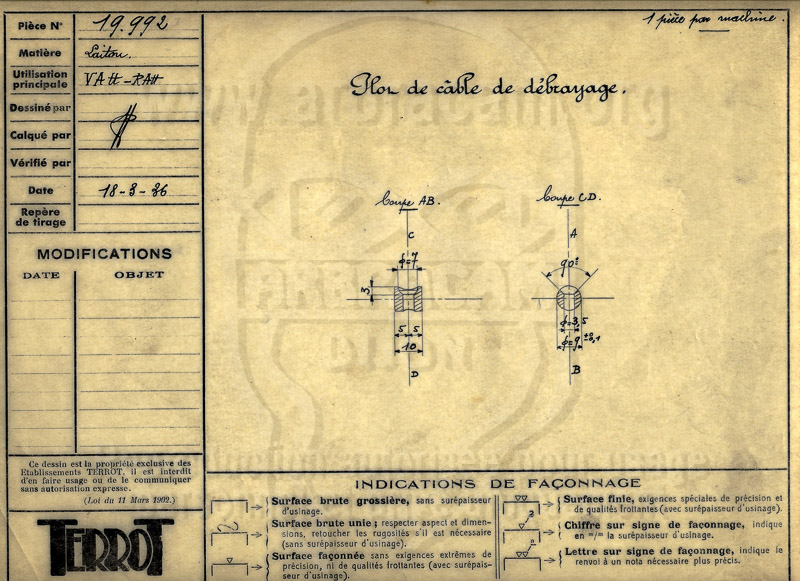 Pièce N° 19.992
1 pièce par machine.
Matière Laiton.
Utilisation
principale VAH - RAH
Dessiné par
Calqué par
Vérifié par
Date 18-3-36
Repère
de tirage
MODIFICATIONS
DATE OBJET
Plot de câble de débrayage.
Coupe AB.
C
ϕ=7
3
5 5
10
D
Coupe CD.
A
90°
ϕ=3,5
ϕ=9 ±0,1
B
Ce dessin est la propriété exclusive des
Etablissements TERROT, il est interdit
d'en faire usage ou de le communiquer
sans autorisation expresse.
(Loi du 11 Mars 1902.)
TERROT
INDICATIONS DE FAÇONNAGE
Surface brute grossière, sans surépaisseur
d'usinage.
Surface brute unie ; respecter aspect et dimen-
sions, retoucher les rugosités s'il est nécessaire
(sans surépaisseur d'usinage).
Surface façonnée sans exigences extrêmes de
précision, ni de qualités frottantes (avec surépais-
seur d'usinage).
Surface finie, exigences spéciales de précision et
de qualités frottantes (avec surépaisseur d'usinage).
3
Chiffre sur signe de façonnage, indique
en m/m la surépaisseur d'usinage.
n
Lettre sur signe de façonnage, indique le
renvoi à un nota nécessaire plus précis.